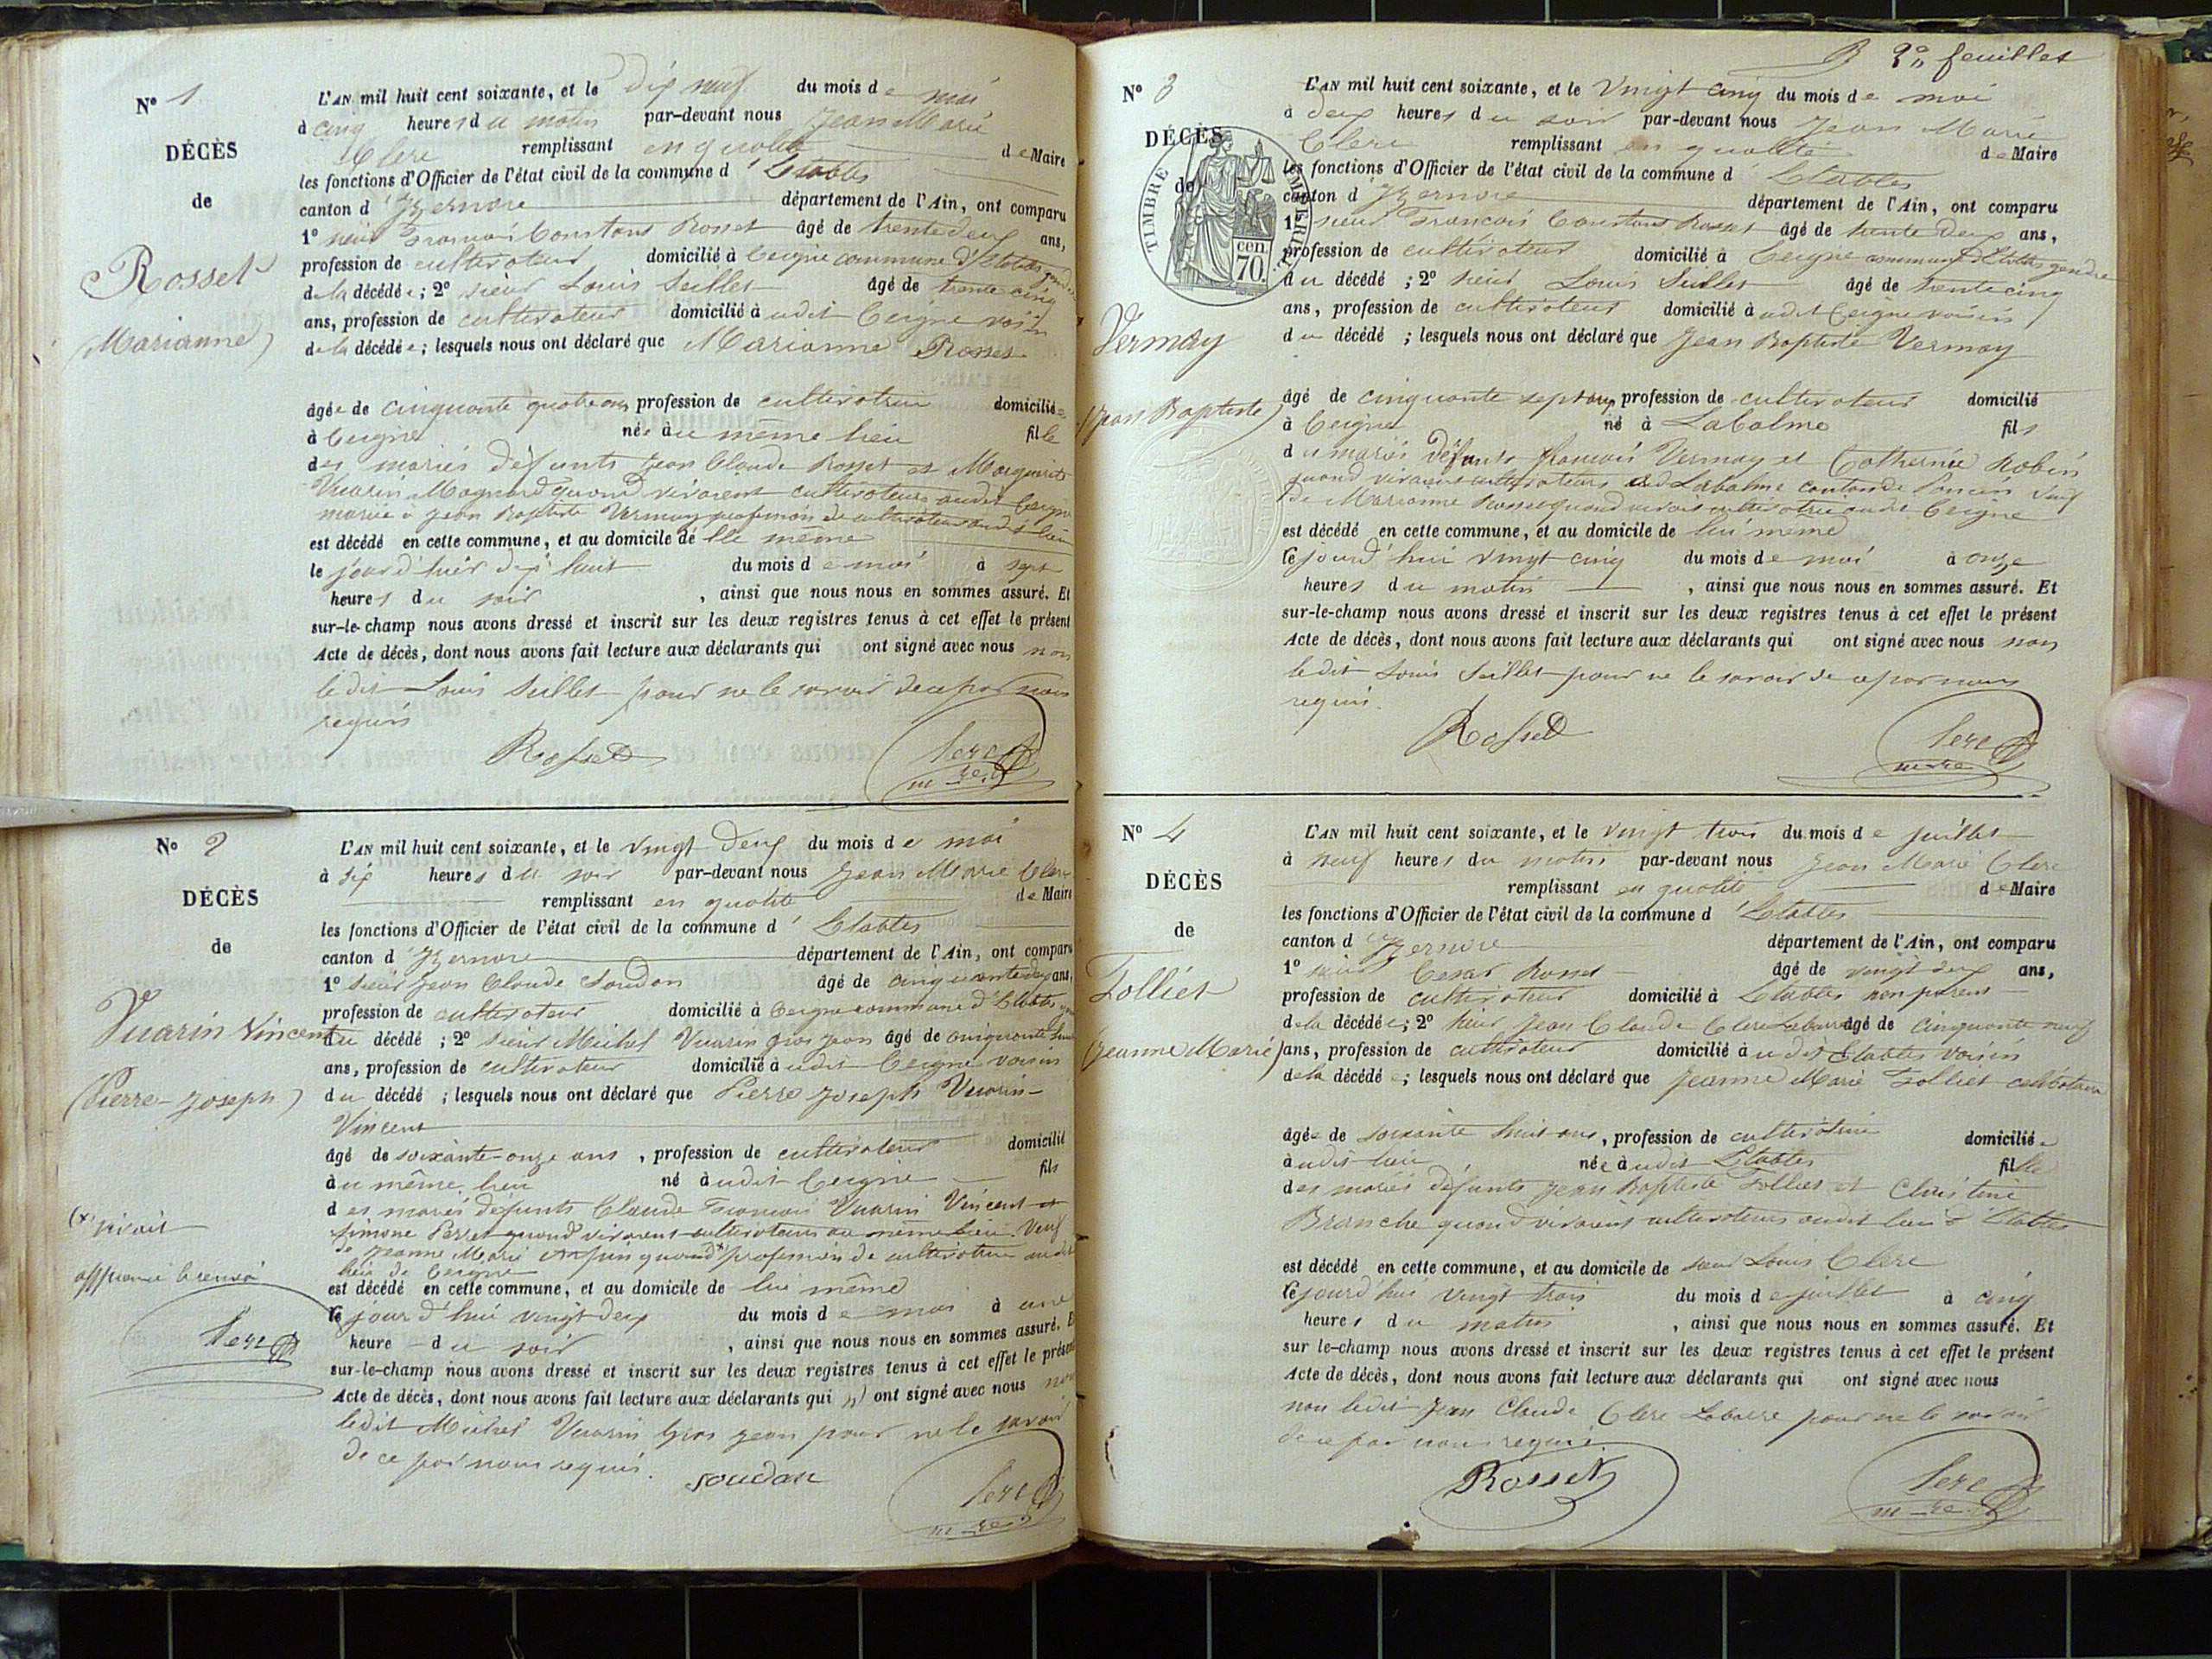 N° 1
DÉCÈS
de
Rosset
(Marianne)
L'AN mil huit cent soixante, et le dix neuf du mois de mai
à cinq heures du matin par-devant nous Jean Marie
Clerc remplissant en qualité de Maire
les fonctions d'Officier de l'état civil de la commune d'Etables
canton d'Izernore département de l'Ain, ont comparu
1° sieur François Constant Rosset âgé de trente deux ans,
profession de cultivateur domicilié à Ceigne commune d'Etables gendre
de la décédée; 2° sieur Louis Seillet âgé de trente cinq
ans, profession de cultivateur domicilié à udit Ceigne voisin
de la décédée; lesquels nous ont déclaré que Marianne Rosset
âgée de cinquante quatre ans profession de cultivatrice domiciliée
à Ceigne née au même lieu fille
des mariés défunts Jean Claude Rosset et Marguerite
Vuarin Magnard quand vivaient cultivateurs audit Ceigne
mariée à Jean Baptiste Vermay profession de cultivateur audit lieu
est décédé en cette commune, et au domicile de elle même
le jour d'hier dix huit du mois de mai à sept
heures du soir, ainsi que nous nous en sommes assuré. Et
sur-le-champ nous avons dressé et inscrit sur les deux registres tenus à cet effet le présent
Acte de décès, dont nous avons fait lecture aux déclarants qui ont signé avec nous non
ledit Louis Seillet pour ne le savoir de ce par nous
requis
Rosset Clerc
m re
N° 2
DÉCÈS
de
Vuarin Vincent
(Pierre-Joseph)
L'AN mil huit cent soixante, et le vingt deux du mois de mai
à six heures du soir par-devant nous Jean Marie Clerc
remplissant en qualité de Maire
les fonctions d'Officier de l'état civil de la commune d'Etables
canton d'Izernore département de l'Ain, ont comparu
1° sieur Jean Claude Soudan âgé de cinquante deux ans,
profession de cultivateur domicilié à Ceigne commune d'Etables
du décédé; 2° sieur Michel Vuarin gros jean âgé de cinquante
ans, profession de cultivateur domicilié à udit Ceigne voisin
du décédé; lesquels nous ont déclaré que Pierre Joseph Vuarin-
Vincent
âgé de soixante-onze ans, profession de cultivateur domicilié
au même lieu né à udit Ceigne fils
des mariés défunts Claude François Vuarin Vincent et
Simone Perret quand vivaient cultivateurs au même lieu Veuf
de Jeanne Marie quand profession de cultivatrice audit
lieu de Ceigne
est décédé en cette commune, et au domicile de lui même
le jour d'hui vingt deux du mois de mai à une
heure du soir, ainsi que nous nous en sommes assuré. Et
sur-le-champ nous avons dressé et inscrit sur les deux registres tenus à cet effet le présent
Acte de décès, dont nous avons fait lecture aux déclarants qui ont signé avec nous non
ledit Michel Vuarin gros jean pour ne le savoir
de ce par nous requis.
soudan Clerc
m re
(x vivait
approuvé le renvoi
Clerc
2e feuillet
N° 3
DÉCÈS
de
TIMBRE IMPERIAL
70 cen.
Vermay
(Jean Baptiste)
L'AN mil huit cent soixante, et le vingt cinq du mois de mai
à deux heures du soir par-devant nous Jean Marie
Clerc remplissant en qualité de Maire
les fonctions d'Officier de l'état civil de la commune d'Etables
canton d'Izernore département de l'Ain, ont comparu
1° sieur François Constant Rosset âgé de trente deux ans,
profession de cultivateur domicilié à Ceigne commune d'Etables gendre
du décédé; 2° sieur Louis Seillet âgé de trente cinq
ans, profession de cultivateur domicilié à udit Ceigne voisin
du décédé; lesquels nous ont déclaré que Jean Baptiste Vermay
âgé de cinquante sept ans profession de cultivateur domicilié
à Ceigne né à Labalme fils
des mariés défunts François Vermay et Catherine Robin
quand vivaient cultivateurs audit Labalme canton de Poncin veuf
de Marianne Rosset quand vivait cultivatrice audit Ceigne
est décédé en cette commune, et au domicile de lui même
le jourd'hui vingt cinq du mois de mai à onze
heures du matin, ainsi que nous nous en sommes assuré. Et
sur-le-champ nous avons dressé et inscrit sur les deux registres tenus à cet effet le présent
Acte de décès, dont nous avons fait lecture aux déclarants qui ont signé avec nous non
ledit Louis Seillet pour ne le savoir de ce par nous
requis.
Rosset Clerc
m re
N° 4
DÉCÈS
de
Folliet
(Jeanne Marie)
L'AN mil huit cent soixante, et le vingt trois du mois de juillet
à neuf heures du matin par-devant nous Jean Marie Clerc
remplissant en qualité de Maire
les fonctions d'Officier de l'état civil de la commune d'Etables
canton d'Izernore département de l'Ain, ont comparu
1° sieur César Rosset âgé de vingt deux ans,
profession de cultivateur domicilié à Etables non parent
de la décédée; 2° sieur Jean Claude Clerc Labarre âgé de cinquante neuf
ans, profession de cultivateur domicilié à udit Etables voisin
de la décédée; lesquels nous ont déclaré que Jeanne Marie Folliet célibataire
âgée de soixante huit ans, profession de cultivatrice domiciliée
audit lieu née à udit Etables fille
des mariés défunts Jean Baptiste Folliet et Christine
Branche quand vivaient cultivateurs audit lieu d'Etables
est décédé en cette commune, et au domicile de sieur Louis Clerc
le jourd'hui vingt trois du mois de juillet à cinq
heures du matin, ainsi que nous nous en sommes assuré. Et
sur le-champ nous avons dressé et inscrit sur les deux registres tenus à cet effet le présent
Acte de décès, dont nous avons fait lecture aux déclarants qui ont signé avec nous
non ledit Jean Claude Clerc Labarre pour ne le savoir
de ce par nous requis.
Rosset Clerc
m re